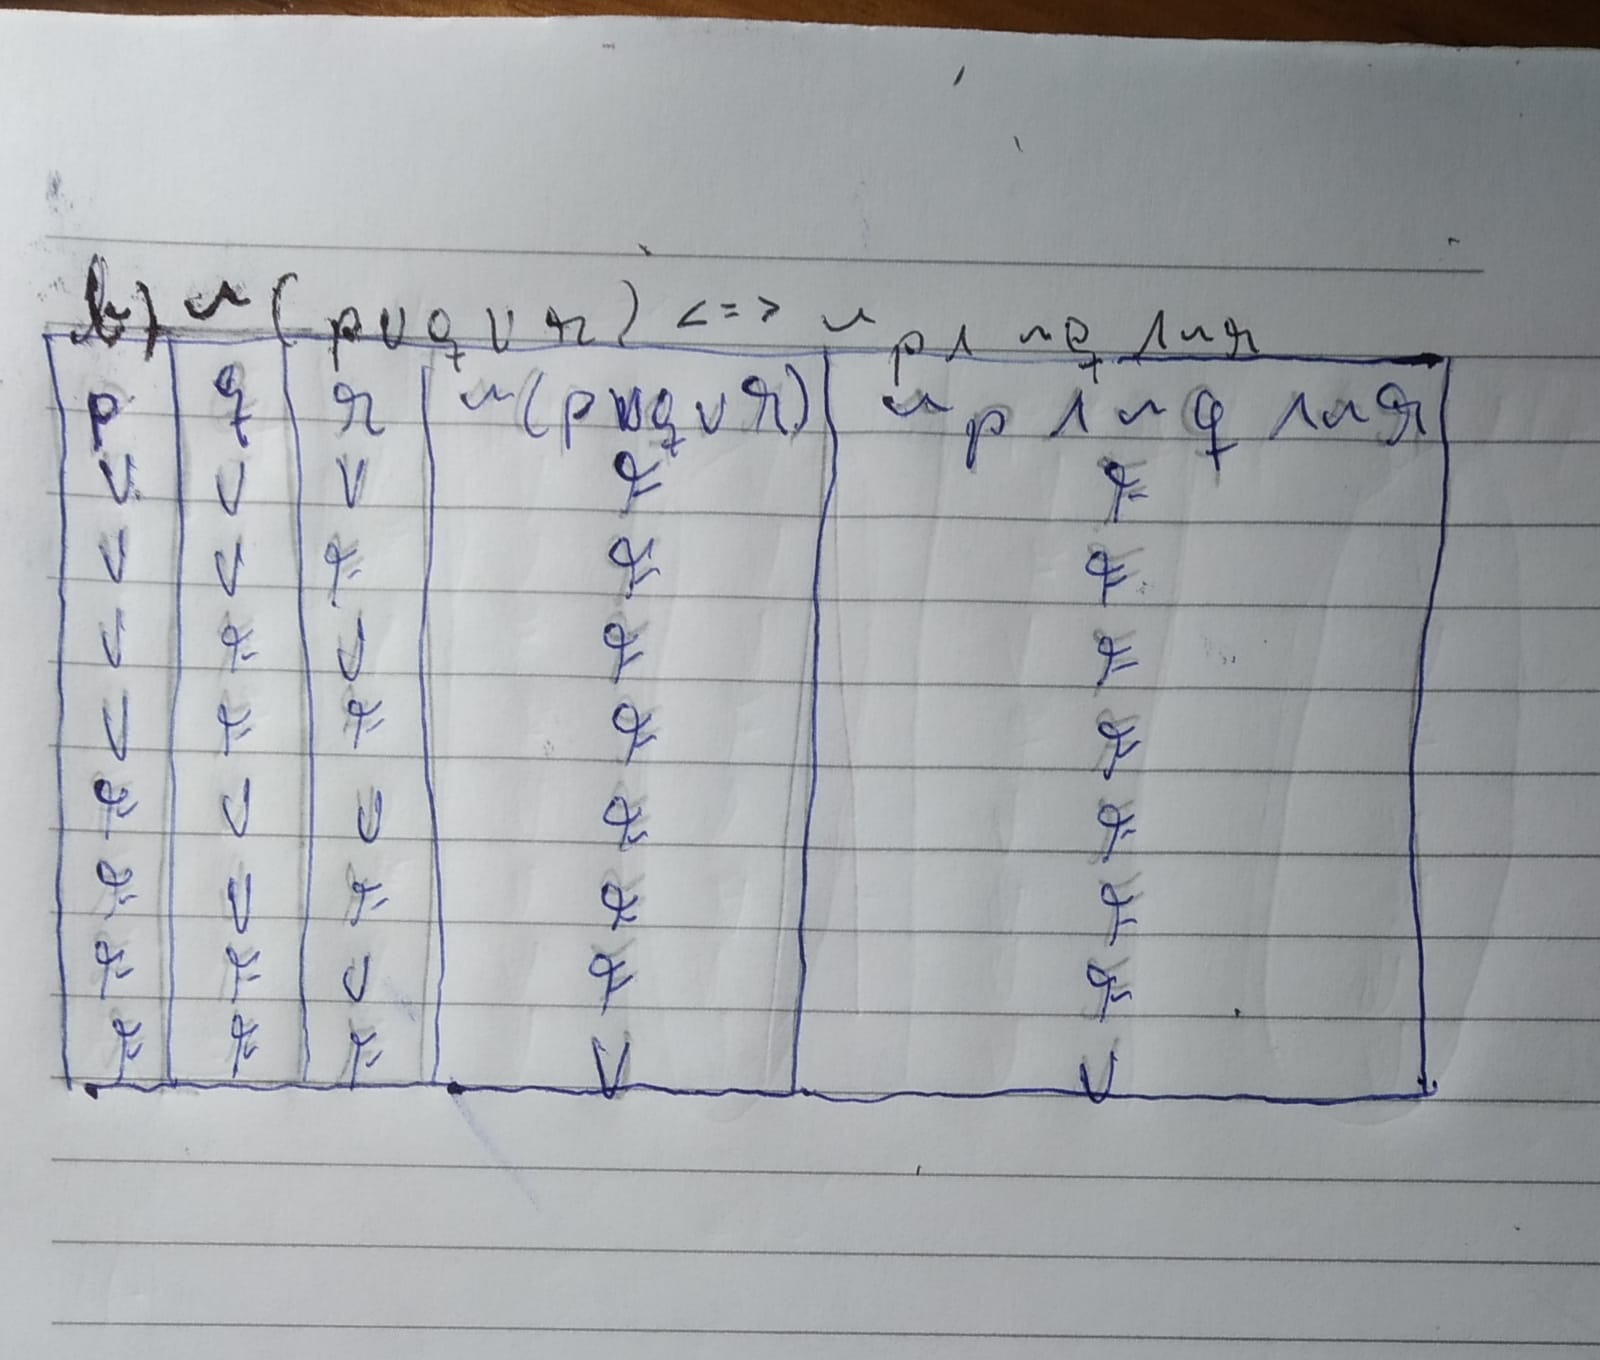 b) ~(p∨q∨r) <=> ~p∧~q∧~r
p q r ~(p∨q∨r) ~p∧~q∧~r
V V V F F
V V F F F
V F V F F
V F F F F
F V V F F
F V F F F
F F V F F
F F F V V